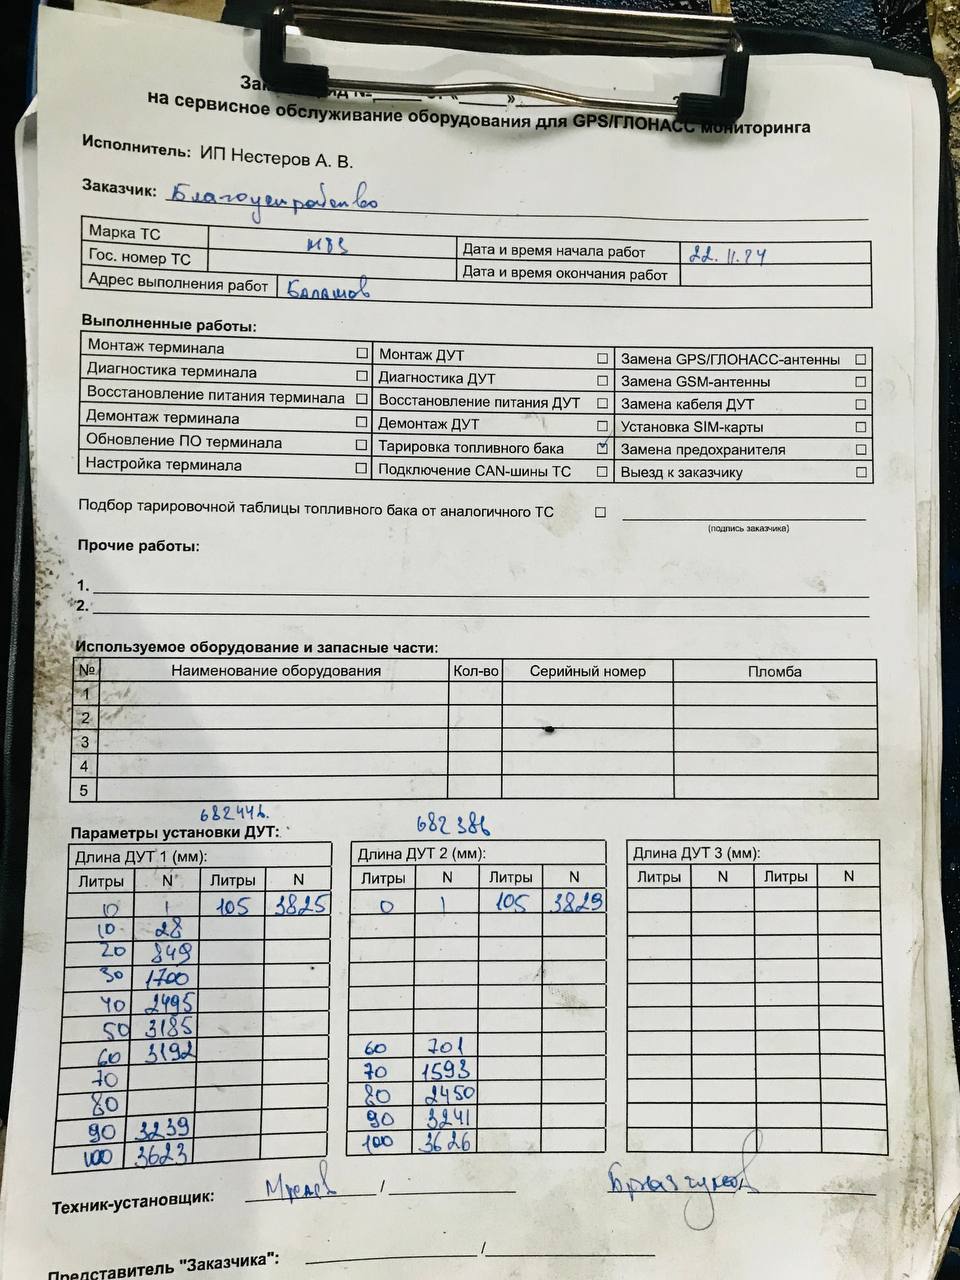 на сервисное обслуживание оборудования для GPS/ГЛОНАСС мониторинга
Исполнитель: ИП Нестеров А. В.
Заказчик: Благоустройство
Марка ТС
Гос. номер ТС
Дата и время начала работ 22.11.24
Дата и время окончания работ
Адрес выполнения работ Балашов
Выполненные работы:
Монтаж терминала ☐ Монтаж ДУТ ☐ Замена GPS/ГЛОНАСС-антенны ☐
Диагностика терминала ☐ Диагностика ДУТ ☐ Замена GSM-антенны ☐
Восстановление питания терминала ☐ Восстановление питания ДУТ ☐ Замена кабеля ДУТ ☐
Демонтаж терминала ☐ Демонтаж ДУТ ☐ Установка SIM-карты ☐
Обновление ПО терминала ☐ Тарировка топливного бака ☑ Замена предохранителя ☐
Настройка терминала ☐ Подключение CAN-шины ТС ☐ Выезд к заказчику ☐
Подбор тарировочной таблицы топливного бака от аналогичного ТС ☐
(подпись заказчика)
Прочие работы:
1.
2.
Используемое оборудование и запасные части:
№ Наименование оборудования Кол-во Серийный номер Пломба
1
2
3
4
5
Параметры установки ДУТ:
Длина ДУТ 1 (мм): Длина ДУТ 2 (мм): Длина ДУТ 3 (мм):
Литры N Литры N Литры N Литры N Литры N Литры N
10 1 105 3825 0 1 105 3829
10 28
20 849
30 1700
40 2495
50 3185
60 3192 60 701
70 70 1593
80 80 2450
90 3239 90 3241
100 3623 100 3626
Техник-установщик: /
Представитель "Заказчика": /